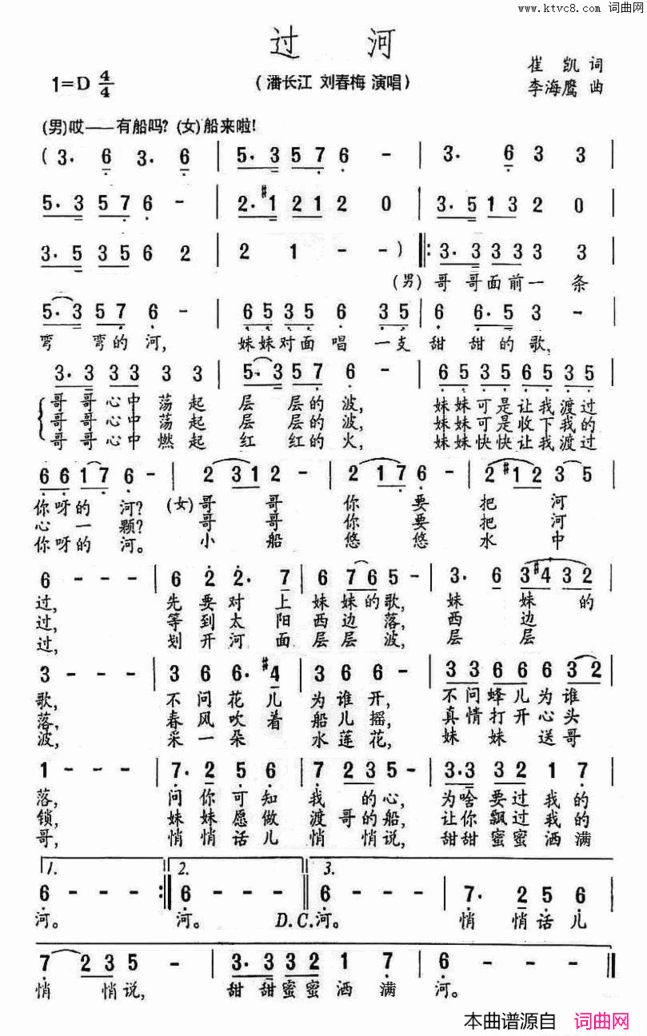 www.ktvc8.com 词曲网
过 河
1=D 4/4
(潘长江 刘春梅 演唱)
崔 凯 词
李海鹰 曲
(男)哎——有船吗? (女)船来啦!
( 3· 6 3· 6 | 5· 3 5 7 6 - | 3· 6 3 3 |
5· 3 5 7 6 - | 2· #1 2 1 2 0 | 3· 5 1 3 2 0 |
3· 5 3 5 6 2 | 2 1 - - ) ‖: 3· 3 3 3 3 3 |
(男) 哥 哥 面 前 一 条
5· 3 5 7 6 - | 6 5 3 5 6 3 5 | 6 6· 5 3 - |
弯 弯的 河, 妹妹对面 唱 一支 甜 甜 的 歌,
3· 3 3 3 3 3 3 | 5· 3 5 7 6 - | 6 5 3 5 6 5 3 5 |
哥哥 心中 荡 起 层 层的 波, 妹妹可是让我渡过
哥哥 心中 荡 起 层 层的 波, 妹妹可是收下我的
哥哥 心中 燃 起 红 红的 火, 妹妹快快让我渡过
6 6 1 7 6 - | 2 3 1 2 - | 2 1 7 6 - | 2 #1 2 3 5 |
你呀的 河? (女)哥 哥 你 要 把 河
心 一 颗? 哥 哥 你 要 把 河
你呀的 河。 小 船 悠 悠 水 中
6 - - - | 6 2 2· 7 | 6 7 6 5 - | 3· 6 3 #4 3 2 |
过, 先 要 对 上 妹 妹的 歌, 妹 妹 的
过, 等 到 太 阳 西 边 落, 西 边
过, 划 开 河 面 层 层 波, 层 层
3 - - - | 3 6 6· #4 | 3 6 6 - | 3 3 6 6 6 3 2 |
歌, 不 问 花 儿 为 谁 开, 不 问 蜂 儿 为 谁
落, 春 风 吹 着 船 儿 摇, 真 情 打 开 心 头
波, 采 一 朵 水 莲 花, 妹 妹 送 哥
1 - - - | 7· 2 5 6 | 7 2 3 5 - | 3·3 3 2 1 7 |
落, 问 你 可 知 我 的 心, 为啥 要过 我 的
锁, 妹 妹 愿 做 渡 哥 的 船, 让你 飘过 我 的
哥, 悄 悄 话 儿 悄 悄 说, 甜甜 蜜蜜 洒 满
1. 2. 3.
6 - - - :‖ 6 - - - ‖ 6 - - - | 7· 2 5 6 |
河。 河。 D.C. 河。 悄 悄 话 儿
7 2 3 5 - | 3· 3 3 3 2 1 7 | 6 - - - ‖
悄 悄 说, 甜 甜 蜜蜜 洒 满 河。
本曲谱源自 词曲网